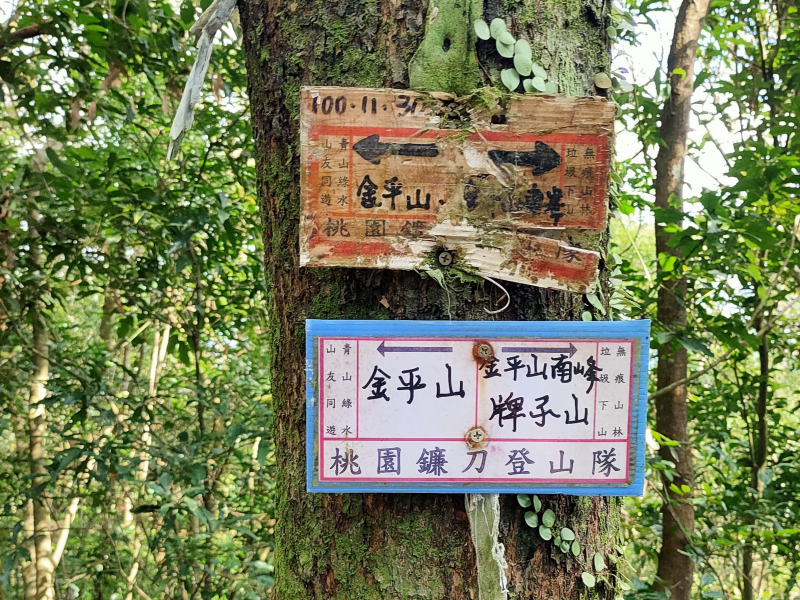 100.11.31
青山綠水
山友同遊
金平山
無痕山林
垃圾下山
桃園鐮
隊
青山綠水
山友同遊
金平山
金平山南峰
牌子山
無痕山林
垃圾下山
桃園鐮刀登山隊